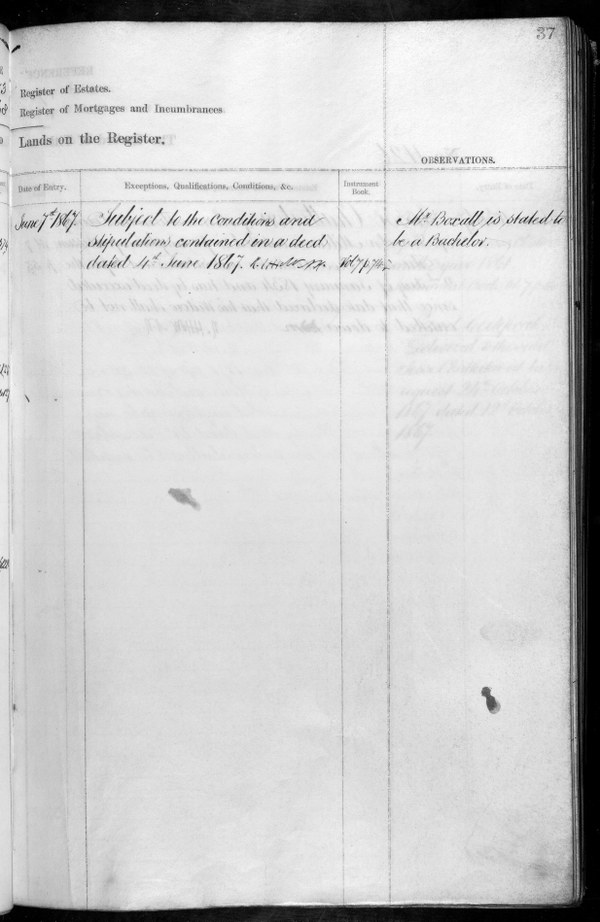 37
Register of Estates.
Register of Mortgages and Incumbrances
Lands on the Register.
OBSERVATIONS.
Date of Entry.
Exceptions, Qualifications, Conditions, &c.
Instrument
Book.
June 7th 1867.
Subject to the conditions and
stipulations contained in a deed
dated 4th June 1867.
Mr. Boxall is stated to
be a Bachelor.